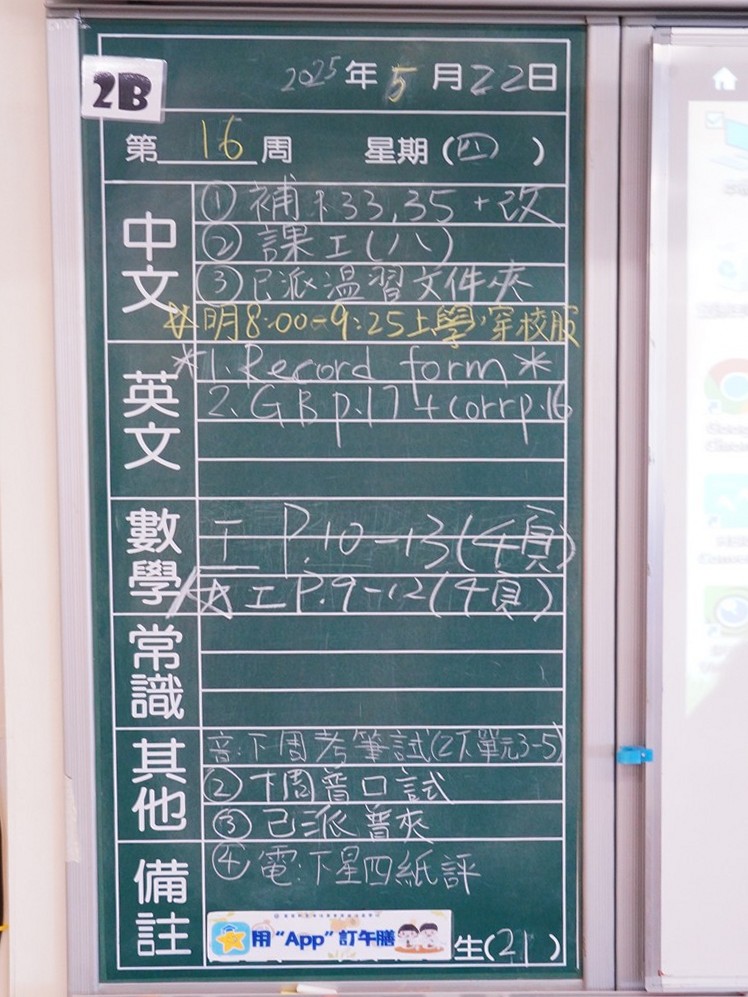 2B
2025年5月22日
第16周 星期(四)
中文
①補 33,35+改
②課工(八)
③已派溫習文件夾
明8:00-9:25上學,穿校服
英文
*1. Record form *
2. GB p.17 + corr p.16
數學
工 P.10-13(4頁)
☆工 P.9-12(4頁)
常識
其他
音:下周考筆試(2下單元3-5)
②下周普口試
③已派普夾
備註
④電:下星四紙評
用“App”訂午膳
生(21)